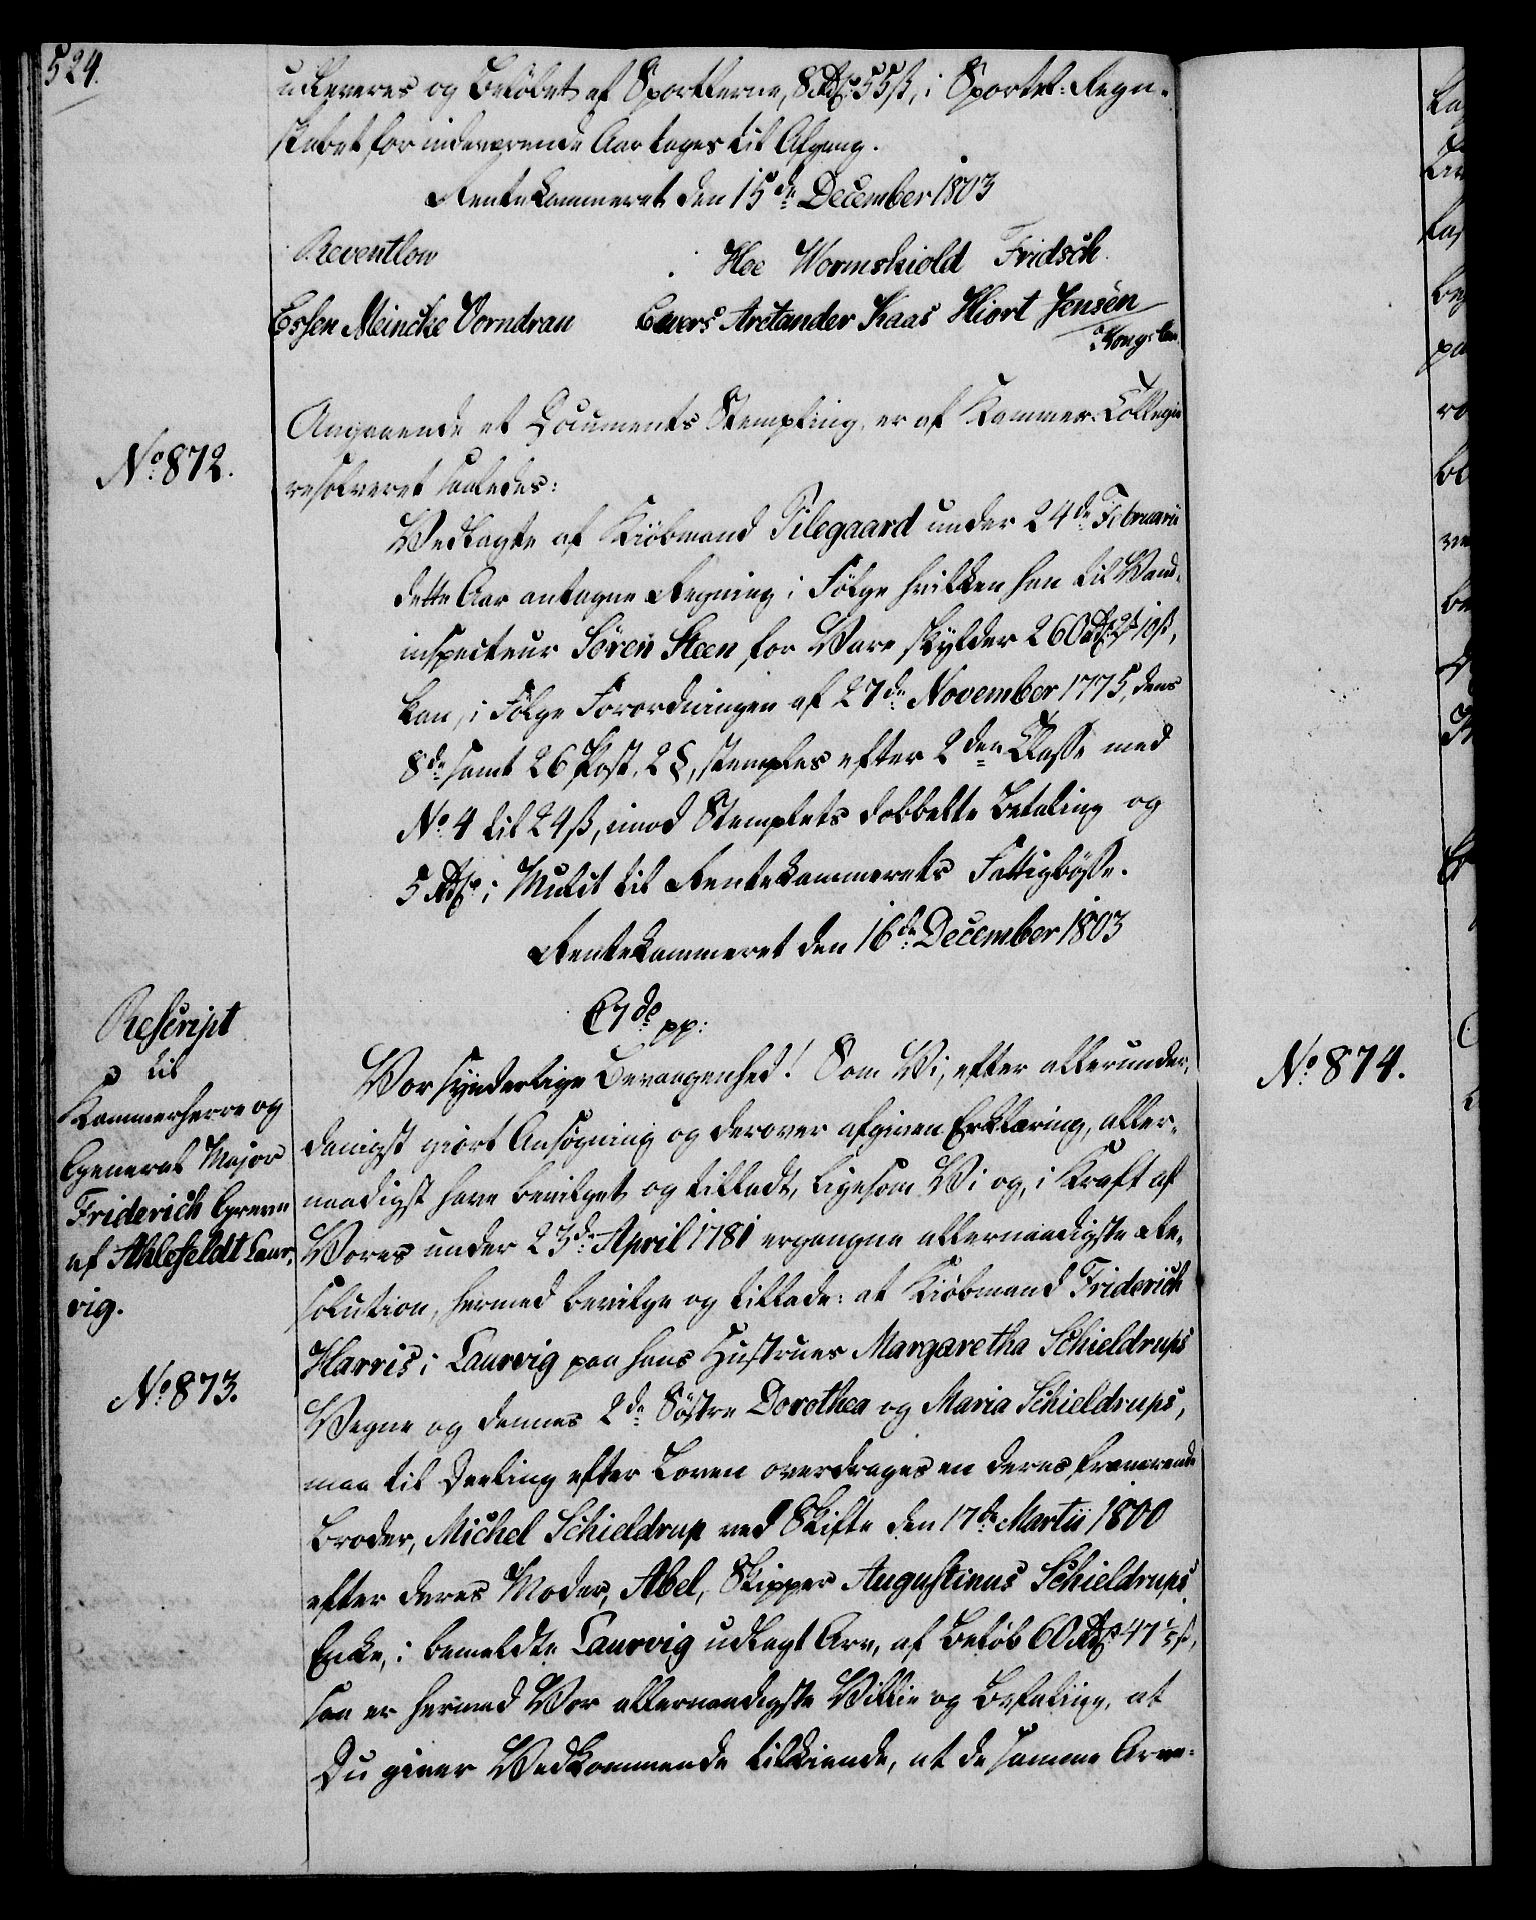 524.
udleveres og Beløbet af Sportlerne, 8 Rdr 55 ß, i Sportel-Regn-
skabet for indeværende Aar tages til Afgang.
Rentekammeret den 15de December 1803
Reventlow
Hoe Wormskiold Fridsch.
Essen Meincke Vorndran Ewers Arctander Kaas Hiort Jensen
Kongslew
No 872.
Angaaende et Documents Stempling, er af Kammer-Collegie
resolveret saaledes:
Vedlagte af Kiøbmand Pilegaard under 24de Februarii
dette Aar antagne Regning i Følge hvilken han til Vand-
inspecteur Søren Steen, for Vare skylder 260 Rdr 2 # 10 ß,
kan, i Følge Forordningen af 27de November 1775, dens
8de samt 26 Post, 2 §, stemples efter 2den Classe med
No 4 til 24 ß, imod Stemplets dobbelte Betaling og
5 Rdr i Mulct til Rentekammerets Fattigbøsse.
Rentekammeret den 16de December 1803
Rescript
til
Kammerherre og
General Major
Friderich Greve
af Ahlefeldt Laur-
vig.
No 873.
C7de pp:
Vor synderlige Bevaagenhed! Som Vi, efter allerunder-
danigst giort Ansøgning og derover afgiven Erklæring, aller-
naadigst have bevilget og tilladt, ligesom Vi og, i Kraft af
Vores under 23de April 1781 ergangne allernaadigste Re-
solution, hermed bevilge og tillade: at Kiøbmand Friderich
Harris i Laurvig paa hans Hustrues Margaretha Schieldrups
Vegne og dennes 2de Søstre Dorothea og Maria Schieldrups,
maa til Deeling efter Loven overdrages en deres fraværende
Broder, Michel Schieldrup ved Skifte den 17de Martii 1800
efter deres Moder, Abel, Skipper Augustinus Schieldrups
Enke, i bemeldte Laurvig udlagt Arv, af Beløb 60 Rdr 47 1/5 ß,
saa er hermed Vor allernaadigste Villie og Befaling, at
Du giver Vedkommende tilkiende, at de samme Arve-
No 874.